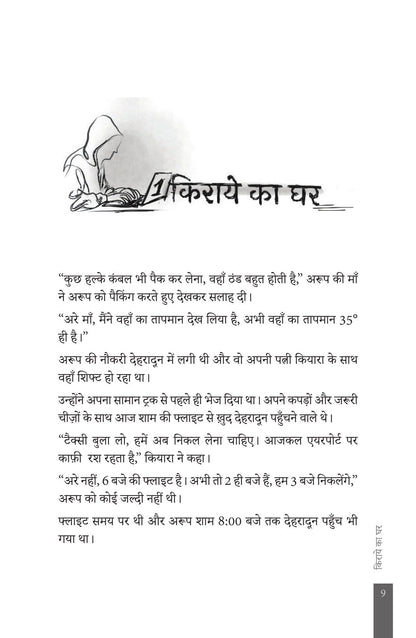 1 किराये का घर
“कुछ हल्के कंबल भी पैक कर लेना, वहाँ ठंड बहुत होती है,” अरूप की माँ
ने अरूप को पैकिंग करते हुए देखकर सलाह दी।
“अरे माँ, मैंने वहाँ का तापमान देख लिया है, अभी वहाँ का तापमान 35°
ही है।”
अरूप की नौकरी देहरादून में लगी थी और वो अपनी पत्नी कियारा के साथ
वहाँ शिफ्ट हो रहा था।
उन्होंने अपना सामान ट्रक से पहले ही भेज दिया था। अपने कपड़ों और जरूरी
चीज़ों के साथ आज शाम की फ्लाइट से ख़ुद देहरादून पहुँचने वाले थे।
“टैक्सी बुला लो, हमें अब निकल लेना चाहिए। आजकल एयरपोर्ट पर
काफ़ी रश रहता है,” कियारा ने कहा।
“अरे नहीं, 6 बजे की फ्लाइट है। अभी तो 2 ही बजे हैं, हम 3 बजे निकलेंगे,”
अरूप को कोई जल्दी नहीं थी।
फ्लाइट समय पर थी और अरूप शाम 8:00 बजे तक देहरादून पहुँच भी
गया था।
किराये का घर
9